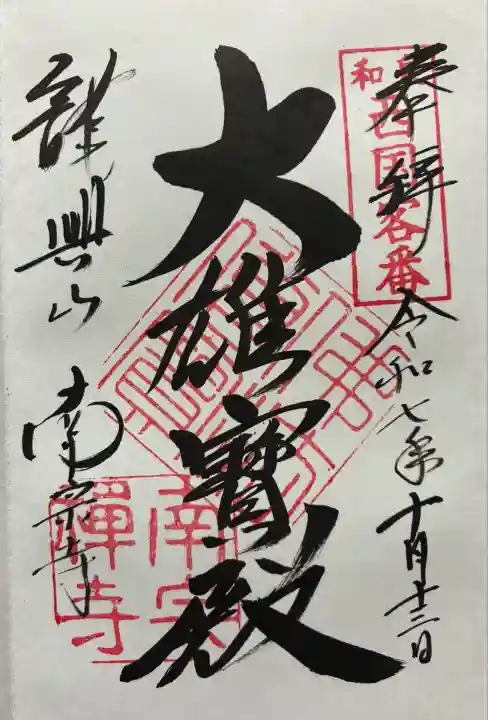 奉拝 令和七年十月十三日
和泉西国客番
大雄寳殿
龍興山 南宗寺
南宗
禪寺